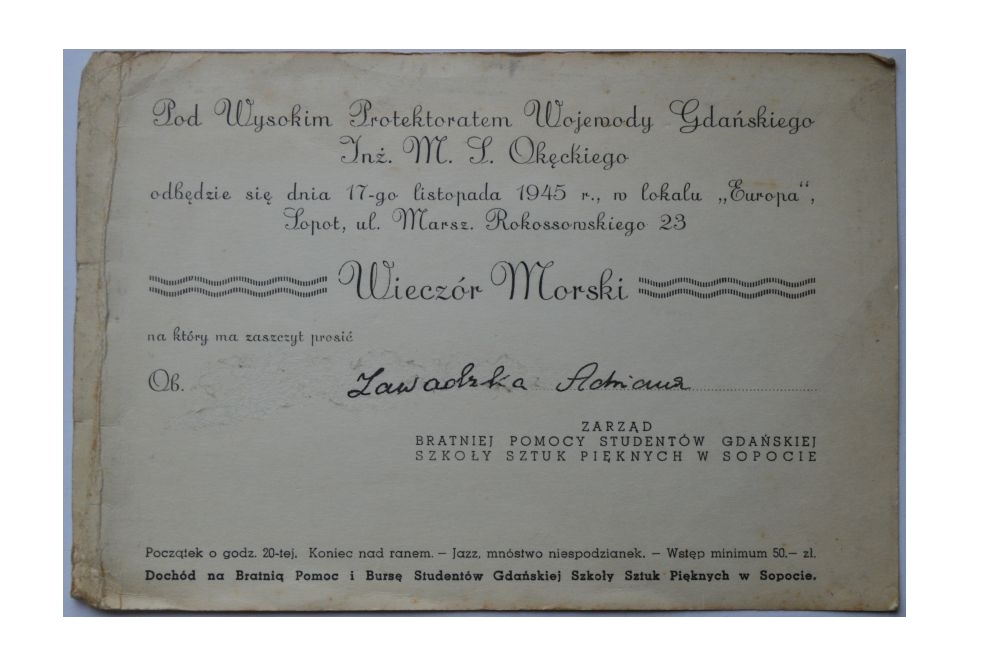 Pod Wysokim Protektoratem Wojewody Gdańskiego
Inż. M. S. Okęckiego
odbędzie się dnia 17-go listopada 1945 r., w lokalu „Europa“,
Sopot, ul. Marsz. Rokossowskiego 23
Wieczór Morski
na który ma zaszczyt prosić
Ob. Zawadzka Adriana
ZARZĄD
BRATNIEJ POMOCY STUDENTÓW GDAŃSKIEJ
SZKOŁY SZTUK PIĘKNYCH W SOPOCIE
Początek o godz. 20-tej. Koniec nad ranem. — Jazz, mnóstwo niespodzianek. — Wstęp minimum 50.— zł.
Dochód na Bratnią Pomoc i Bursę Studentów Gdańskiej Szkoły Sztuk Pięknych w Sopocie.